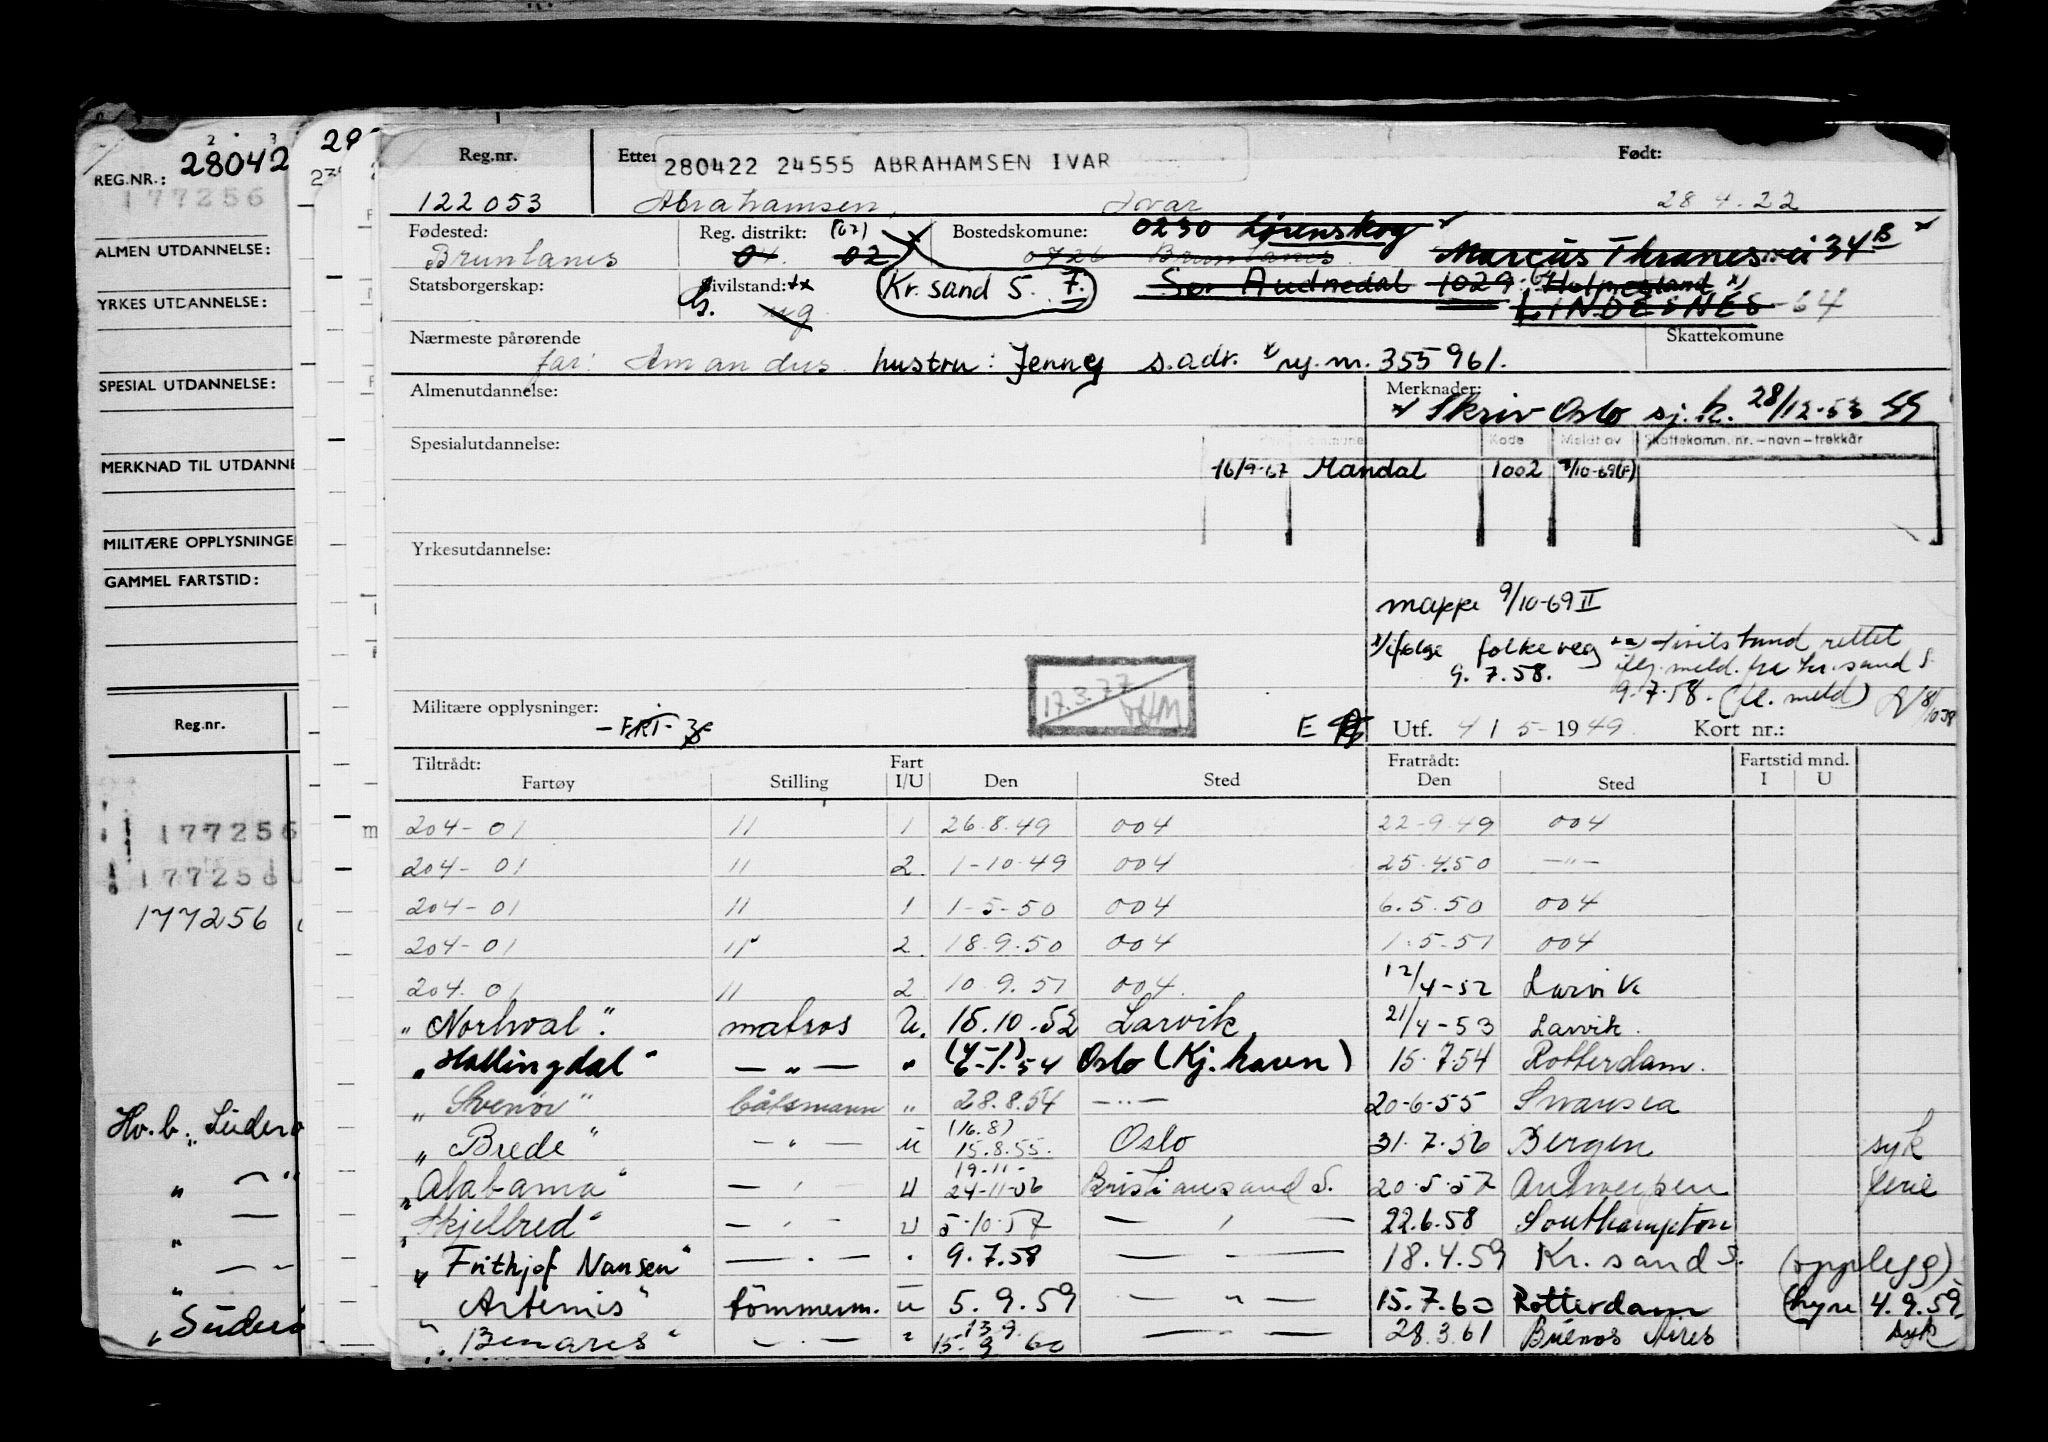 REG.NR.: 28042
177256
ALMEN UTDANNELSE:
YRKES UTDANNELSE:
SPESIAL UTDANNELSE:
MERKNAD TIL UTDANNE
MILITÆRE OPPLYSNINGE
GAMMEL FARTSTID:
Reg.nr.
177256
177256
177256
Hv.b. „Südero
„
„
„
„Südero
29
Reg.nr. Etter 280422 24555 ABRAHAMSEN IVAR Født:
122053 Abrahamsen, Ivar 28 4.22
Fødested: Reg. distrikt: (07) Bostedskomune: 0230 Lørenskog
Brunlanes 04 02 0726 Brunlanes Marcus Thranesvei 34B
Statsborgerskap: Sivilstand: Kr.sand S. 7. Sør Audnedal 1029
g. ug LINDESNES 64
Nærmeste pårørende Skattekomune
far: Amandus hustru: Jenny s.adr. reg.nr. 355961.
Almenutdannelse: Merknader:
Skriv Oslo sj.k. 28/12-53
Spesialutdannelse: Kode Meldt av Skattekomm. nr. – navn – trekkår
16/9-67 Mandal 1002 9/10-69(F)
Yrkesutdannelse:
mappe 9/10-69 II
x/ifølge folkereg xx Sivilstand rettet
9.7.58. iflg. meld. fra Kr.sand S.
9.7.58. (fl. meld)
17.3.77
Militære opplysninger: E Utf. 4/5-1949 Kort nr.:
Tiltrådt: Fart Fratrådt: Fartstid mnd.
Fartøy Stilling I/U Den Sted Den Sted I U
204-01 11 1 26.8.49 004 22-9.49 004
204-01 11 2 1-10-49 004 25.4.50 —"—
204-01 11 1 1-5-50 004 6.5.50 004
204-01 11 2 18.9.50 004 1.5-51 004
204.01 11 2 10.9.51 004. 12/4-52 Larvik
„Norhval". matros U. 15.10.52 Larvik 21/4-53 Larvik.
„Hallingdal" —„— " Oslo (Kj.havn) 15.7.54 Rotterdam.
„Svenør" båtsmann " 28.8.54 —"— 20-6-55 Swansea
(16.8)
„Brede" —"— u 15.8.55. Oslo 31.7.56 Bergen syk
19-11-
„Alabama" —"— U 24-11-56 Kristiansand S. 20.5.57 Antwerpen ferie
„Skjelbred" —"— U 5-10-57 —"— 22.6.58 Southampton
„Frithjof Nansen" —"— " 9.7.58 —"— 18.4.59 Kr.sand S. (opplegg)
„Artemis" tömmerm. u 5.9.59 —"— 15.7.60 Rotterdam (hyre 4.9.59
13.9.
„Benares" —"— " 15-9 60 —"— 28.3.61 Buenos Aires syk